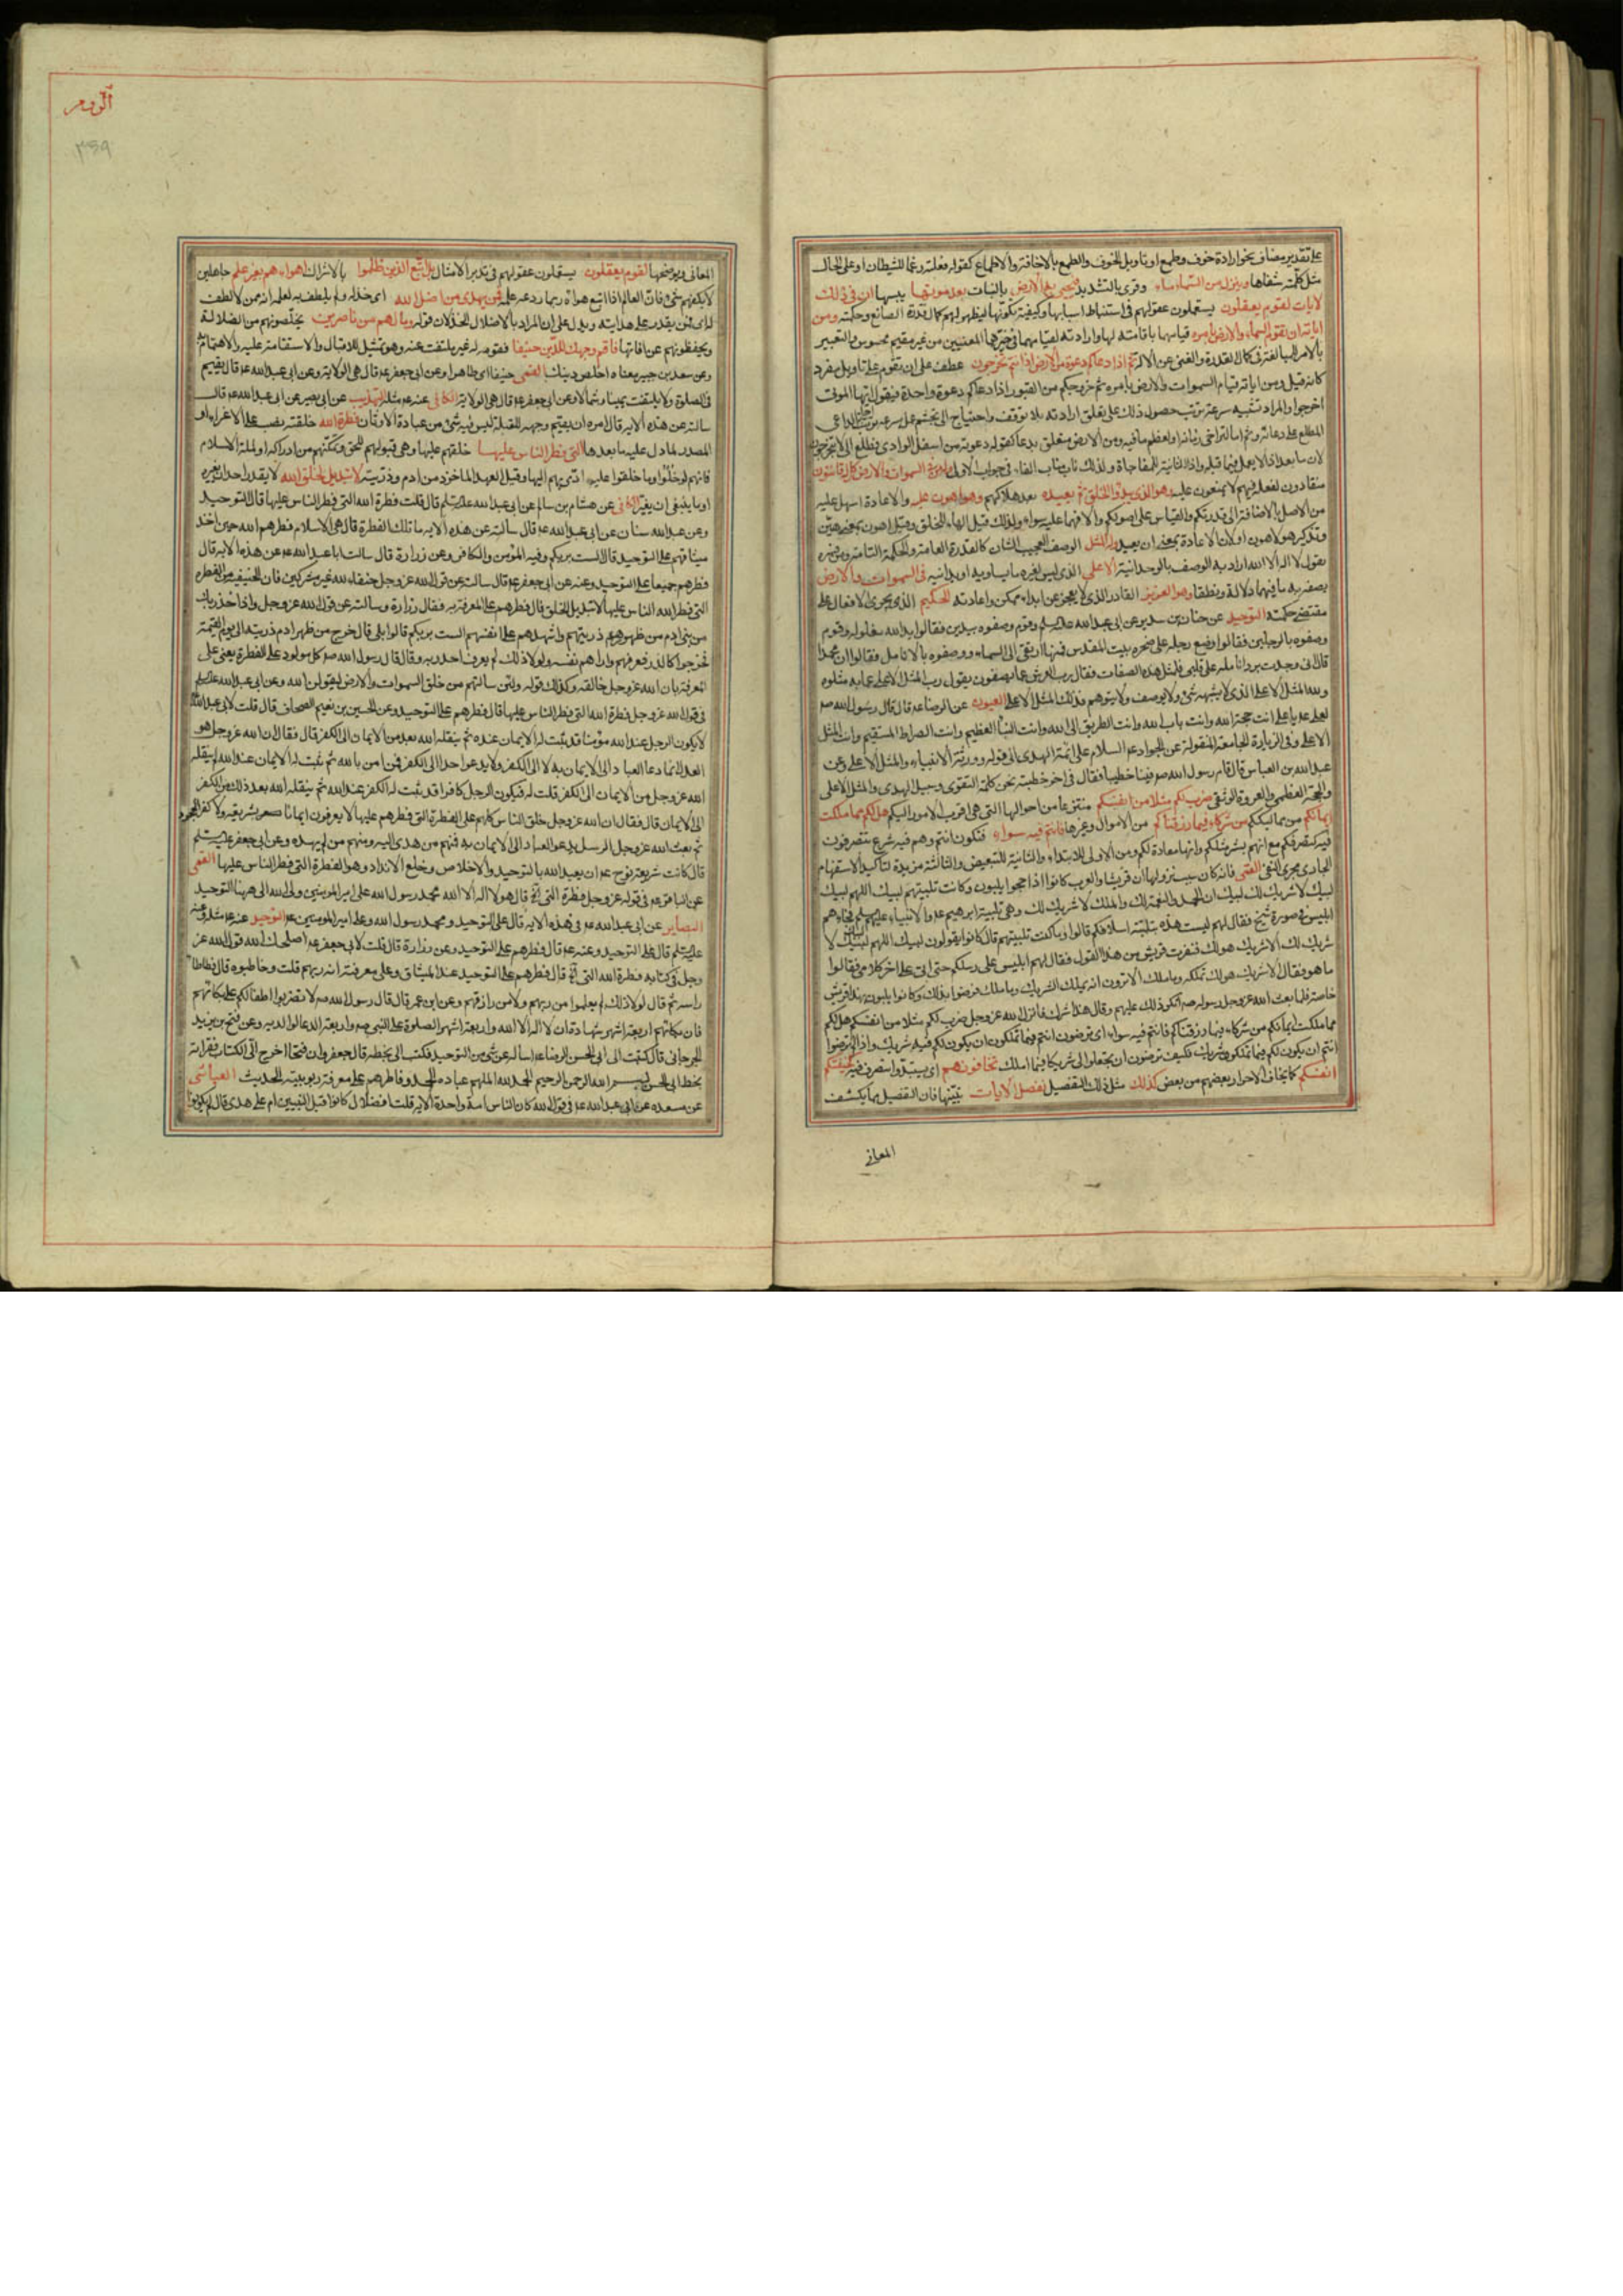 على تقدير مضاف نحو ارادة خوف وطمع او تاويل الخوف والطمع بالاخافة والاطماع كقوله فعلته رغما للشيطان او على الحال
مثل كلمته شفاها وينزل من السماء ماء وقرئ بالتشديد فيحيي به الارض بالنبات بعد موتها يبسها ان في ذلك
لايات لقوم يعقلون يستعملون عقولهم في استنباط اسبابها وكيفية تكونها ليظهر لهم كمال قدرة الصانع وحكمته ومن
اياته ان تقوم السماء والارض بامره قيامهما باقامته لهما وارادته لقيامهما في حيزهما المعينين من غير مقيم محسوس والتعبير
بالامر للمبالغة في كمال القدرة والغنى عن الالة ثم اذا دعاكم دعوة من الارض اذا انتم تخرجون عطف على ان تقوم على تاويل مفرد
كانه قيل ومن اياته قيام السموات والارض بامره ثم خروجكم من القبور اذا دعاكم دعوة واحدة فيقول ايتها الموتى
اخرجوا والمراد تشبيه سرعة ترتب حصول ذلك على تعلق ارادته بلا توقف واحتياج الى تجشم عمل بسرعة ترتب اجابة الداعي
المطاع على دعائه وثم اما لتراخي زمانه او لعظم ما فيه ومن الارض متعلق بدعا كقوله دعوته من اسفل الوادي فطلع الي لا بتخرجون
لان ما بعد اذا لا يعمل فيما قبله واذا الثانية للمفاجاة ولذلك ناب مناب الفاء في جواب الاولى وله من في السموات والارض كل له قانتون
منقادون لفعله فيهم لا يمتنعون عليه وهو الذي يبدؤ الخلق ثم يعيده بعد هلاكهم وهو اهون عليه والاعادة اسهل عليه
من الاصل بالاضافة الى قدرتكم والقياس على اصولكم والا فهما عليه سواء ولذلك قيل الهاء للخلق وقيل اهون بمعنى هين
وتذكير هو لاهون او لان الاعادة بمعنى ان يعيد وله المثل الوصف العجيب الشان كالقدرة العامة والحكمة التامة ومن فسره
بقول لا اله الا الله اراد به الوصف بالوحدانية الاعلى الذي ليس لغيره ما يساويه او يدانيه في السموات والارض
يصفه به ما فيهما دلالة ونطقا وهو العزيز القادر الذي لا يعجز عن ابداء ممكن واعادته الحكيم الذي يجري الافعال على
مقتضى حكمته التوحيد عن حنان بن سدير عن ابي عبد الله عليه السلم وقوم وصفوه بيدين فقالوا يد الله مغلولة وقوم
وصفوه بالرجلين فقالوا وضع رجله على صخرة بيت المقدس فمنها ارتقى الى السماء ووصفوه بالانامل فقالوا ان محمدا
قال اني وجدت برد انامله على قلبي فلمثل هذه الصفات فقال رب العرش عما يصفون يقول رب المثل الاعلى عما به مثلوه
ولله المثل الاعلى الذي لا يشبهه شئ ولا يوصف ولا يتوهم فذلك المثل الاعلى العيون عن الرضا عه قال قال رسول الله صه
لعلي عه يا علي انت حجة الله وانت باب الله وانت الطريق الى الله وانت النبأ العظيم وانت الصراط المستقيم وانت المثل
الاعلى وفي الزيارة الجامعة المنقولة عن الجواد عه السلام على ائمة الهدى الى قوله وورثة الانبياء والمثل الاعلى وعن
عبد الله بن العباس قال قام رسول الله صه فينا خطيبا فقال في اخر خطبته نحن كلمة التقوى وسبيل الهدى والمثل الاعلى
والحجة العظمى والعروة الوثقى ضرب لكم مثلا من انفسكم منتزعا من احوالها التي هي اقرب الامور اليكم هل لكم مما ملكت
ايمانكم من مماليككم من شركاء فيما رزقناكم من الاموال وغيرها فانتم فيه سواء فتكون انتم وهم فيه شرع تتصرفون
فيه كتصرفكم مع انهم بشر مثلكم وانها معادة لكم ومن الاولى للابتداء والثانية للتبعيض والثالثة مزيدة لتاكيد الاستفهام
الجاري مجرى النفي القمي فانه كان سبب نزولها ان قريشا والعرب كانوا اذا حجوا يلبون وكانت تلبيتهم لبيك اللهم لبيك
لبيك لا شريك لك لبيك ان الحمد والنعمة لك والملك لا شريك لك وهي تلبية ابرهيم عه والانبياء عليهم السلم فجاءهم
ابليس في صورة شيخ فقال لهم ليست هذه بتلبية اسلافكم قالوا وما كانت تلبيتهم قال كانوا يقولون لبيك اللهم لبيك لا
شريك لك الا شريك هو لك فنفرت قريش من هذا القول فقال لهم ابليس على رسلكم حتى اتي على اخر كلامي فقالوا
ما هو فقال الا شريك هو لك تملكه وما ملك الا ترون انه يملك الشريك وما ملك فرضوا بذلك وكانوا يلبون بهذا قريش
خاصة فلما بعث الله عز وجل رسوله صه انكر ذلك عليهم وقال هذا شرك فانزل الله عز وجل ضرب لكم مثلا من انفسكم هل لكم
مما ملكت ايمانكم من شركاء فيما رزقناكم فانتم فيه سواء اي ترضون انتم فيما تملكون ان يكون لكم فيه شريك واذا لم ترضوا
انتم ان يكون لكم فيما تملكون شريك فكيف ترضون ان تجعلوا لي شريكا فيما املك تخافونهم اي يستبدوا بتصرف فيه كخيفتكم
انفسكم كما يخاف الاحرار بعضهم من بعض كذلك مثل ذلك التفصيل نفصل الايات نبينها فان التفصيل مما يكشف
المعاني
الروم
٣٥٩
المعاني ويوضحها لقوم يعقلون يستعملون عقولهم في تدبر الامثال بل اتبع الذين ظلموا بالاشراك اهواءهم بغير علم جاهلين
لا يكفهم شئ فان العالم اذا اتبع هواه ربما ردعه علمه فمن يهدي من اضل الله اي خذله ولم يلطف به لعلمه انه ممن لا لطف
له اي فمن يقدر على هدايته ويدل على ان المراد بالاضلال الخذلان قوله وما لهم من ناصرين يخلصونهم من الضلالة
ويحفظونهم عن افاتها فاقم وجهك للدين حنيفا فقومه له غير ملتفت عنه وهو تمثيل للاقبال والاستقامة عليه والاهتمام به
وعن سعد بن جبير معناه اخلص دينك القمي حنيفا اي طاهرا وعن ابي جعفر عه قال هي الولاية وعن ابي عبد الله عه قال يقيم
في الصلوة ولا يلتفت يمينا وشمالا وعن ابي جعفر عه قال هي الولاية الكافي عنه عه مثله التهذيب عن ابي بصير عن ابي عبد الله عه قال
سالته عن هذه الاية قال امره ان يقيم وجهه للقبلة ليس فيه شئ من عبادة الاوثان فطرة الله خلقته نصب على الاغراء او
المصدر لما دل عليه ما بعدها التي فطر الناس عليها خلقهم عليها وهي قبولهم للحق وتمكنهم من ادراكه او ملة الاسلام
فانهم لو خلوا وما خلقوا عليه ادى بهم اليها وقيل العهد الماخوذ من ادم وذريته لا تبديل لخلق الله لا يقدر احد ان يغيره
او ما ينبغي ان يغير الكافي عن هشام بن سالم عن ابي عبد الله عليه السلم قال قلت فطرة الله التي فطر الناس عليها قال التوحيد
وعن عبد الله سنان عن ابي عبد الله عه قال سالته عن هذه الاية ما تلك الفطرة قال هي الاسلام فطرهم الله حين اخذ
ميثاقهم على التوحيد قال الست بربكم وفيه المؤمن والكافر وعن زرارة قال سالت ابا عبد الله عه عن هذه الاية قال
فطرهم جميعا على التوحيد وعنه عن ابي جعفر عه قال سالته عن قول الله عز وجل حنفاء لله غير مشركين فان الحنيفية من الفطرة
التي فطر الله الناس عليها لا تبديل لخلق الله قال فطرهم على المعرفة به فقال زرارة وسالته عن قول الله عز وجل واذ اخذ ربك
من بني ادم من ظهورهم ذريتهم واشهدهم على انفسهم الست بربكم قالوا بلى قال خرج من ظهر ادم ذريته الى يوم القيمة
فخرجوا كالذر فعرفهم واراهم نفسه ولولا ذلك لم يعرف احد ربه وقال قال رسول الله صه كل مولود على الفطرة يعني على
المعرفة بان الله عز وجل خالقه وكذلك قوله ولئن سالتهم من خلق السموات والارض ليقولن الله وعن ابي عبد الله عليه السلم
في قول الله عز وجل فطرة الله التي فطر الناس عليها قال فطرهم على التوحيد وعن الحسين بن نعيم الصحاف قال قلت لابي عبد الله
لا يكون الرجل عند الله مؤمنا قد ثبت له الايمان عنده ثم ينقله الله بعد من الايمان الى الكفر قال فقال ان الله عز وجل هو
العدل انما دعا العباد الى الايمان به لا الى الكفر ولا يدعو احدا الى الكفر فمن امن بالله ثم ثبت له الايمان عند الله لم ينقله
الله عز وجل من الايمان الى الكفر قلت له فيكون الرجل كافرا قد ثبت له الكفر عند الله ثم ينقله الله بعد ذلك من الكفر
الى الايمان قال فقال ان الله عز وجل خلق الناس كلهم على الفطرة التي فطرهم عليها لا يعرفون ايمانا بشريعة ولا كفرا بجحود
ثم بعث الله عز وجل الرسل يدعو العباد الى الايمان به فمنهم من هدى الله ومنهم من لم يهده وعن ابي جعفر عليه السلم
قال كانت شريعة نوح عه ان يعبد الله بالتوحيد والاخلاص وخلع الانداد وهو الفطرة التي فطر الناس عليها القمي
عن الباقر عه في قوله عز وجل فطرة التي اه قال هو لا اله الا الله محمد رسول الله علي امير المؤمنين ولي الله الى ههنا التوحيد
البصاير عن ابي عبد الله عه في هذه الاية قال على التوحيد ومحمد رسول الله وعلي امير المؤمنين عه التوحيد عنه عه مثله وعنه
عليه السلم قال على التوحيد وعنه عه قال فطرهم على التوحيد وعن زرارة قال قلت لابي جعفر عه اصلحك الله قول الله عز
وجل في كتابه فطرة الله التي اه قال فطرهم على التوحيد عند الميثاق وعلى معرفته انه ربهم قلت وخاطبوه قال فطاطا
راسه ثم قال لولا ذلك لم يعلموا من ربهم ولا من رازقهم وعن ابن عمر قال قال رسول الله صه لا تضربوا اطفالكم على بكائهم
فان بكائهم اربعة اشهر شهادة ان لا اله الا الله واربعة اشهر الصلوة على النبي صه واربعة الدعاء لوالديه وعن فتح بن يزيد
الجرجاني قال كتبت الى ابي الحسن الرضا عه اساله عن شئ من التوحيد فكتب الي بخطه قال جعفر وان فتحا اخرج الي الكتاب فقراته
بخط ابي الحسن بسم الله الرحمن الرحيم الحمد لله الملهم عباده الحمد وفاطرهم على معرفة ربوبيته الحديث العياشي
عن مسعدة عن ابي عبد الله عه في قول الله كان الناس امة واحدة الاية قلت افضلال كانوا قبل النبيين ام على هدى قال لم يكونوا